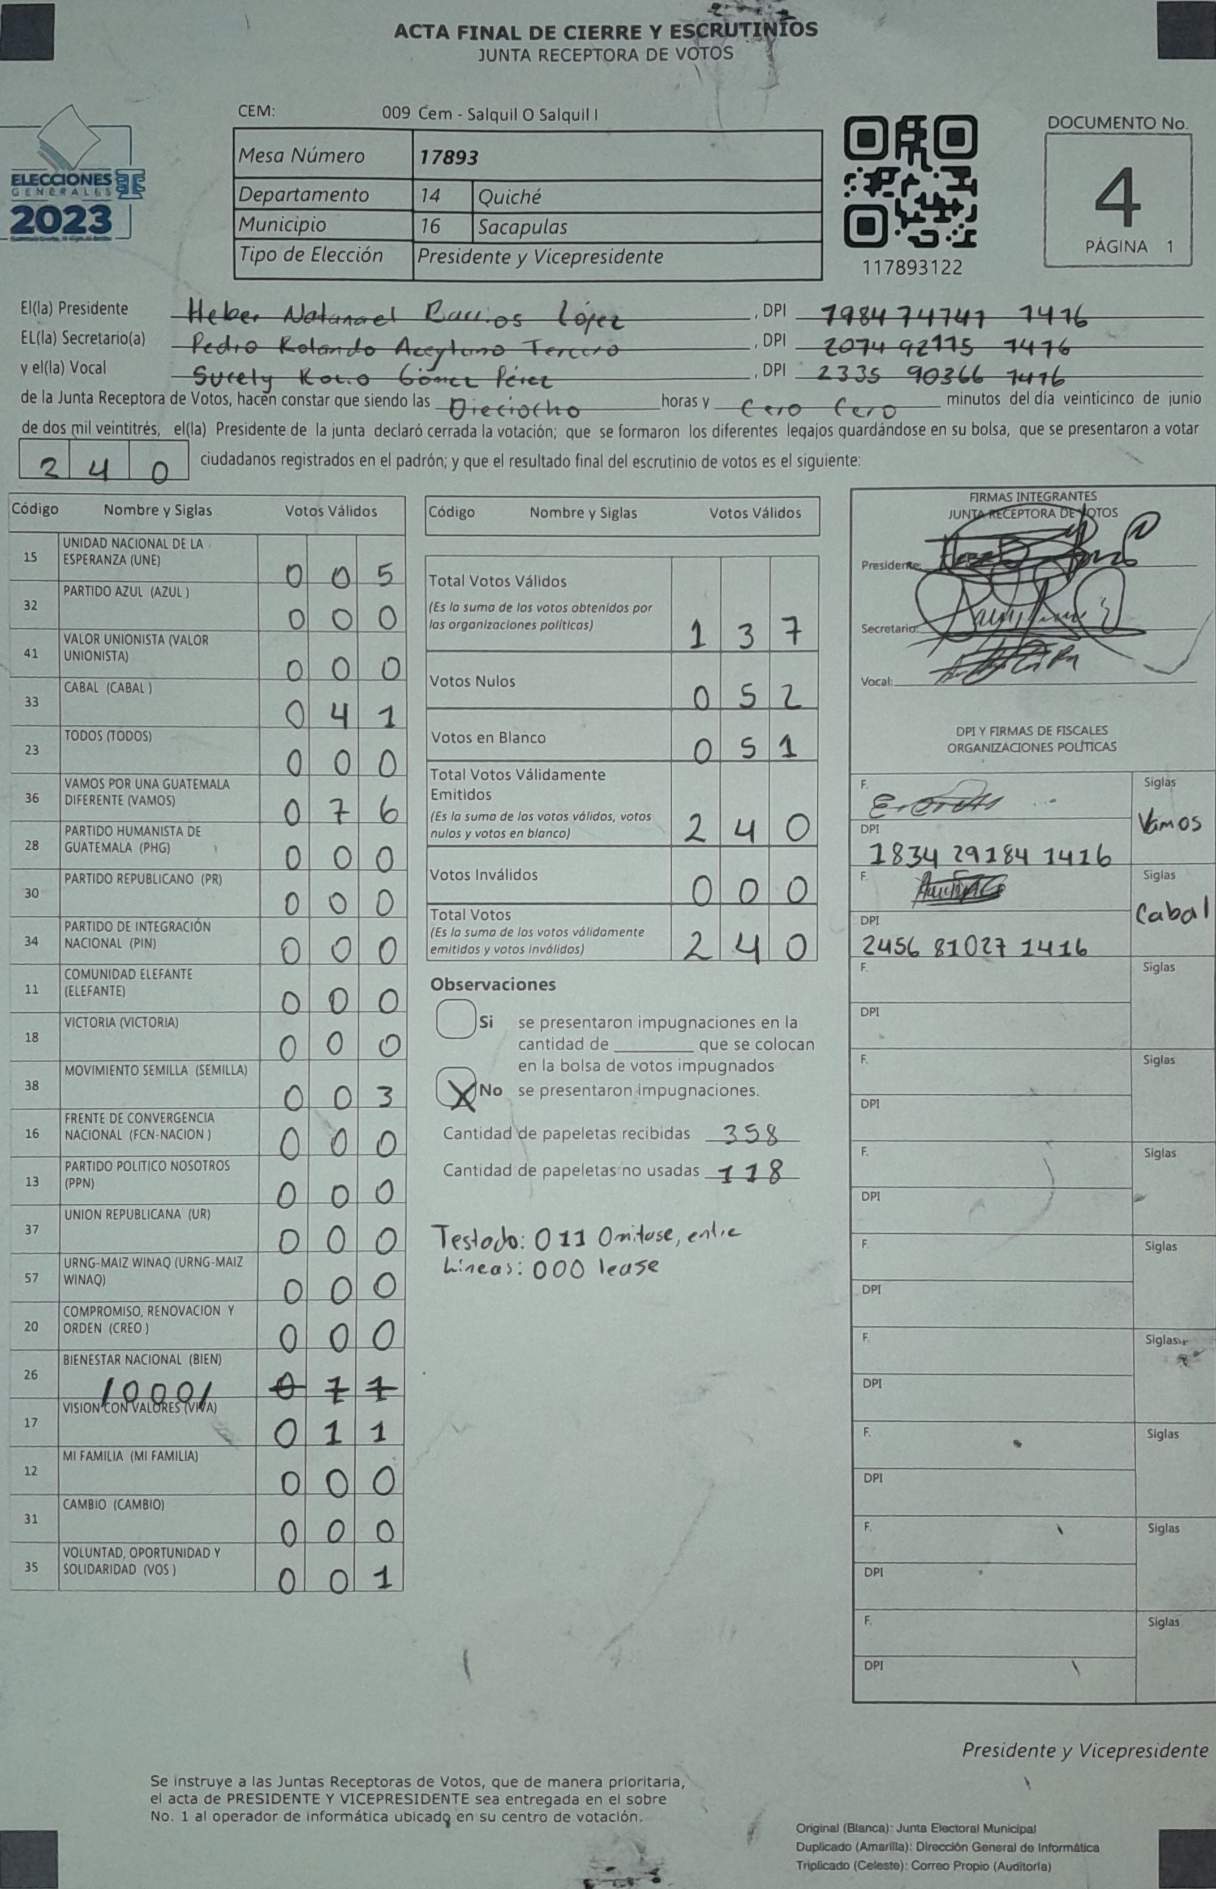 ACTA FINAL DE CIERRE Y ESCRUTINIOS
JUNTA RECEPTORA DE VOTOS
CEM: 009 Cem - Salquil O Salquil I
ELECCIONES
GENERALES
2023
Mesa Número 17893
Departamento 14 Quiché
Municipio 16 Sacapulas
Tipo de Elección Presidente y Vicepresidente
117893122
DOCUMENTO No.
4
PÁGINA 1
El(la) Presidente Heber Natanael Barrios López, DPI 1984 74747 1416
EL(la) Secretario(a) Pedro Rolando Aceytuno Tercero, DPI 2074 92175 1416
y el(la) Vocal Surely Gómez Pérez, DPI 2335 90366 1416
de la Junta Receptora de Votos, hacen constar que siendo las Dieciocho horas y Cero Cero minutos del día veinticinco de junio
de dos mil veintitrés, el(la) Presidente de la junta declaró cerrada la votación; que se formaron los diferentes legajos guardándose en su bolsa, que se presentaron a votar
240 ciudadanos registrados en el padrón; y que el resultado final del escrutinio de votos es el siguiente:
Código Nombre y Siglas Votos Válidos
15 UNIDAD NACIONAL DE LA
ESPERANZA (UNE) 0 0 5
32 PARTIDO AZUL (AZUL ) 0 0 0
41 VALOR UNIONISTA (VALOR
UNIONISTA) 0 0 0
33 CABAL (CABAL ) 0 4 1
23 TODOS (TODOS) 0 0 0
36 VAMOS POR UNA GUATEMALA
DIFERENTE (VAMOS) 0 7 6
28 PARTIDO HUMANISTA DE
GUATEMALA (PHG) 0 0 0
30 PARTIDO REPUBLICANO (PR) 0 0 0
34 PARTIDO DE INTEGRACIÓN
NACIONAL (PIN) 0 0 0
11 COMUNIDAD ELEFANTE
(ELEFANTE) 0 0 0
18 VICTORIA (VICTORIA) 0 0 0
38 MOVIMIENTO SEMILLA (SEMILLA) 0 0 3
16 FRENTE DE CONVERGENCIA
NACIONAL (FCN-NACION ) 0 0 0
13 PARTIDO POLITICO NOSOTROS
(PPN) 0 0 0
37 UNION REPUBLICANA (UR) 0 0 0
57 URNG-MAIZ WINAQ (URNG-MAIZ
WINAQ) 0 0 0
20 COMPROMISO, RENOVACION Y
ORDEN (CREO ) 0 0 0
26 BIENESTAR NACIONAL (BIEN) 0 1 1
/000/
17 VISION CON VALORES (VIVA) 0 1 1
12 MI FAMILIA (MI FAMILIA) 0 0 0
31 CAMBIO (CAMBIO) 0 0 0
35 VOLUNTAD, OPORTUNIDAD Y
SOLIDARIDAD (VOS ) 0 0 1
Código Nombre y Siglas Votos Válidos
Total Votos Válidos
(Es la suma de los votos obtenidos por
las organizaciones políticas) 1 3 7
Votos Nulos 0 5 2
Votos en Blanco 0 5 1
Total Votos Válidamente
Emitidos
(Es la suma de los votos válidos, votos
nulos y votos en blanco) 2 4 0
Votos Inválidos 0 0 0
Total Votos
(Es la suma de los votos válidamente
emitidos y votos inválidos) 2 4 0
Observaciones
Si se presentaron impugnaciones en la
cantidad de ________ que se colocan
en la bolsa de votos impugnados
X No se presentaron impugnaciones.
Cantidad de papeletas recibidas 358
Cantidad de papeletas no usadas 118
Testado: 011 Omitase, entre
Lineas: 000 lease
FIRMAS INTEGRANTES
JUNTA RECEPTORA DE VOTOS
Presidente:
Secretario:
Vocal:
DPI Y FIRMAS DE FISCALES
ORGANIZACIONES POLÍTICAS
F. Siglas
Vamos
DPI
1834 29184 1416
F. Siglas
Cabal
DPI
2456 81027 1416
F. Siglas
DPI
F. Siglas
DPI
F. Siglas
DPI
F. Siglas
DPI
F. Siglas
DPI
F. Siglas
DPI
F. Siglas
DPI
F. Siglas
DPI
Presidente y Vicepresidente
Se instruye a las Juntas Receptoras de Votos, que de manera prioritaria,
el acta de PRESIDENTE Y VICEPRESIDENTE sea entregada en el sobre
No. 1 al operador de informática ubicado en su centro de votación.
Original (Blanca): Junta Electoral Municipal
Duplicado (Amarilla): Dirección General de Informática
Triplicado (Celeste): Correo Propio (Auditoría)